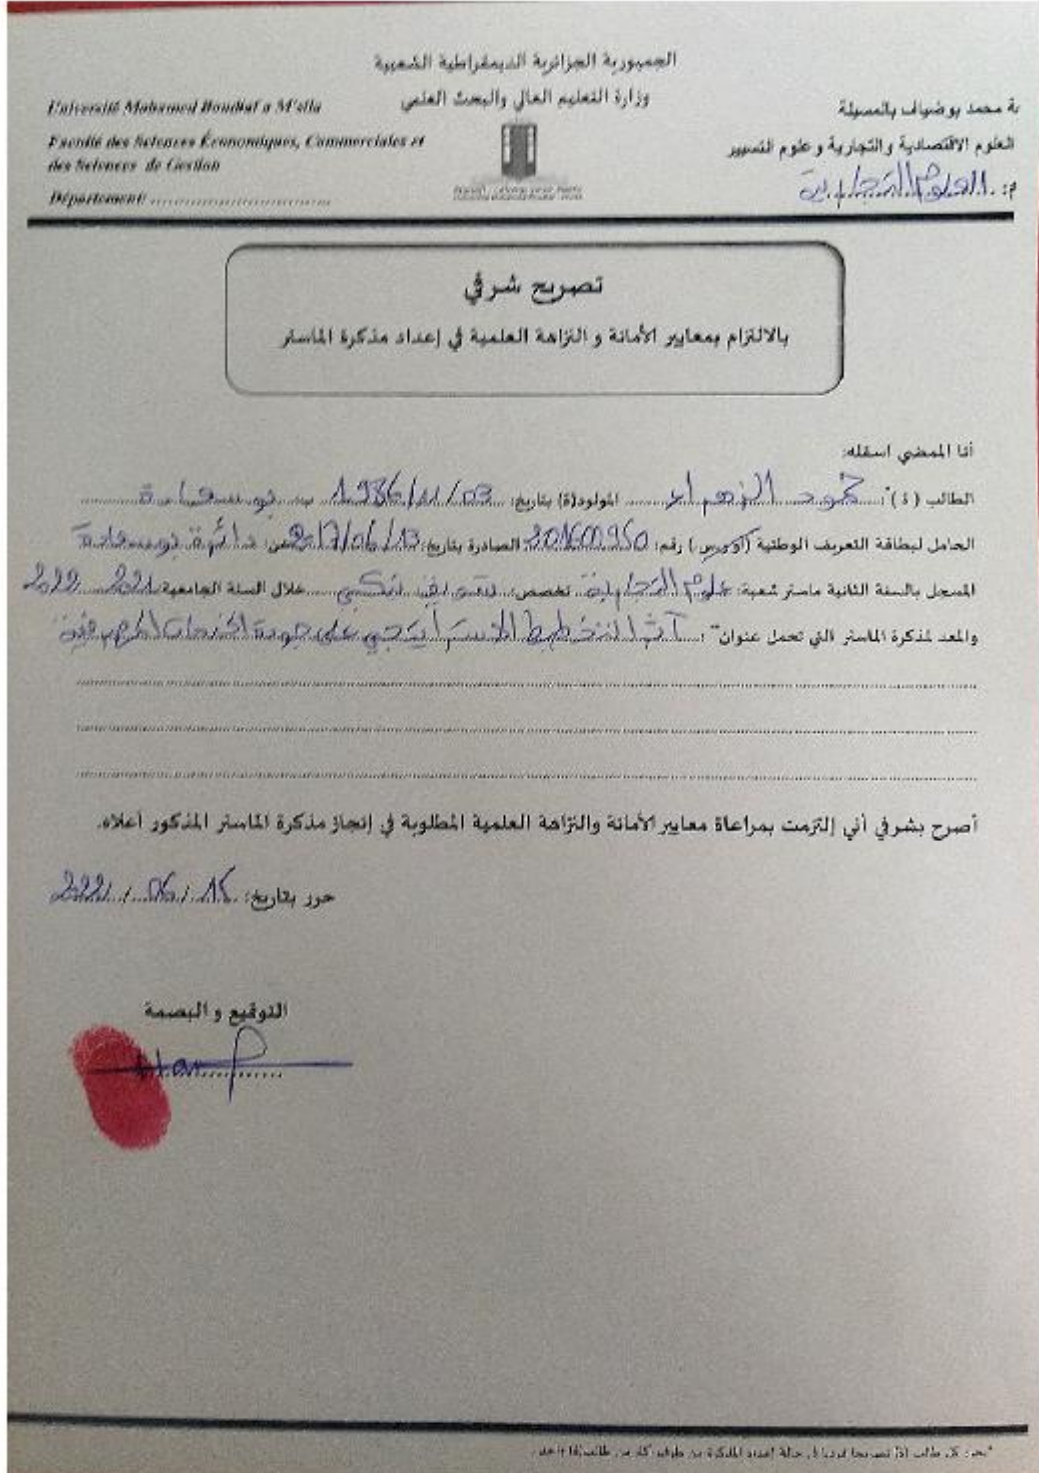 الجمهورية الجزائرية الديمقراطية الشعبية
وزارة التعليم العالي والبحث العلمي
Université Mohamed Boudiaf a M'sila
Faculté des Sciences Économiques, Commerciales et
des Sciences de Gestion
Département: ................................
ة محمد بوضياف بالمسيلة
العلوم الاقتصادية والتجارية وعلوم التسيير
م: العلوم التجارية
تصريح شرفي
بالالتزام بمعايير الأمانة و النزاهة العلمية في إعداد مذكرة الماستر
أنا الممضي اسفله:
الطالب (ة): حمود الزهراء المولود(ة) بتاريخ: 1986/11/03 ب بوسعادة
الحامل لبطاقة التعريف الوطنية رقم: 201600950 الصادرة بتاريخ: 2017/06/13 عن: دائرة بوسعادة
المسجل بالسنة الثانية ماستر شعبة: علوم التجارية تخصص: خلال السنة الجامعية: 2021 2022
والمعد لمذكرة الماستر التي تحمل عنوان": أثر التخطيط الاستراتيجي على جودة الخدمات المصرفية
أصرح بشرفي أني إلتزمت بمراعاة معايير الأمانة والنزاهة العلمية المطلوبة في إنجاز مذكرة الماستر المذكور أعلاه.
حرر بتاريخ: 15 / 06 / 2022
التوقيع و البصمة